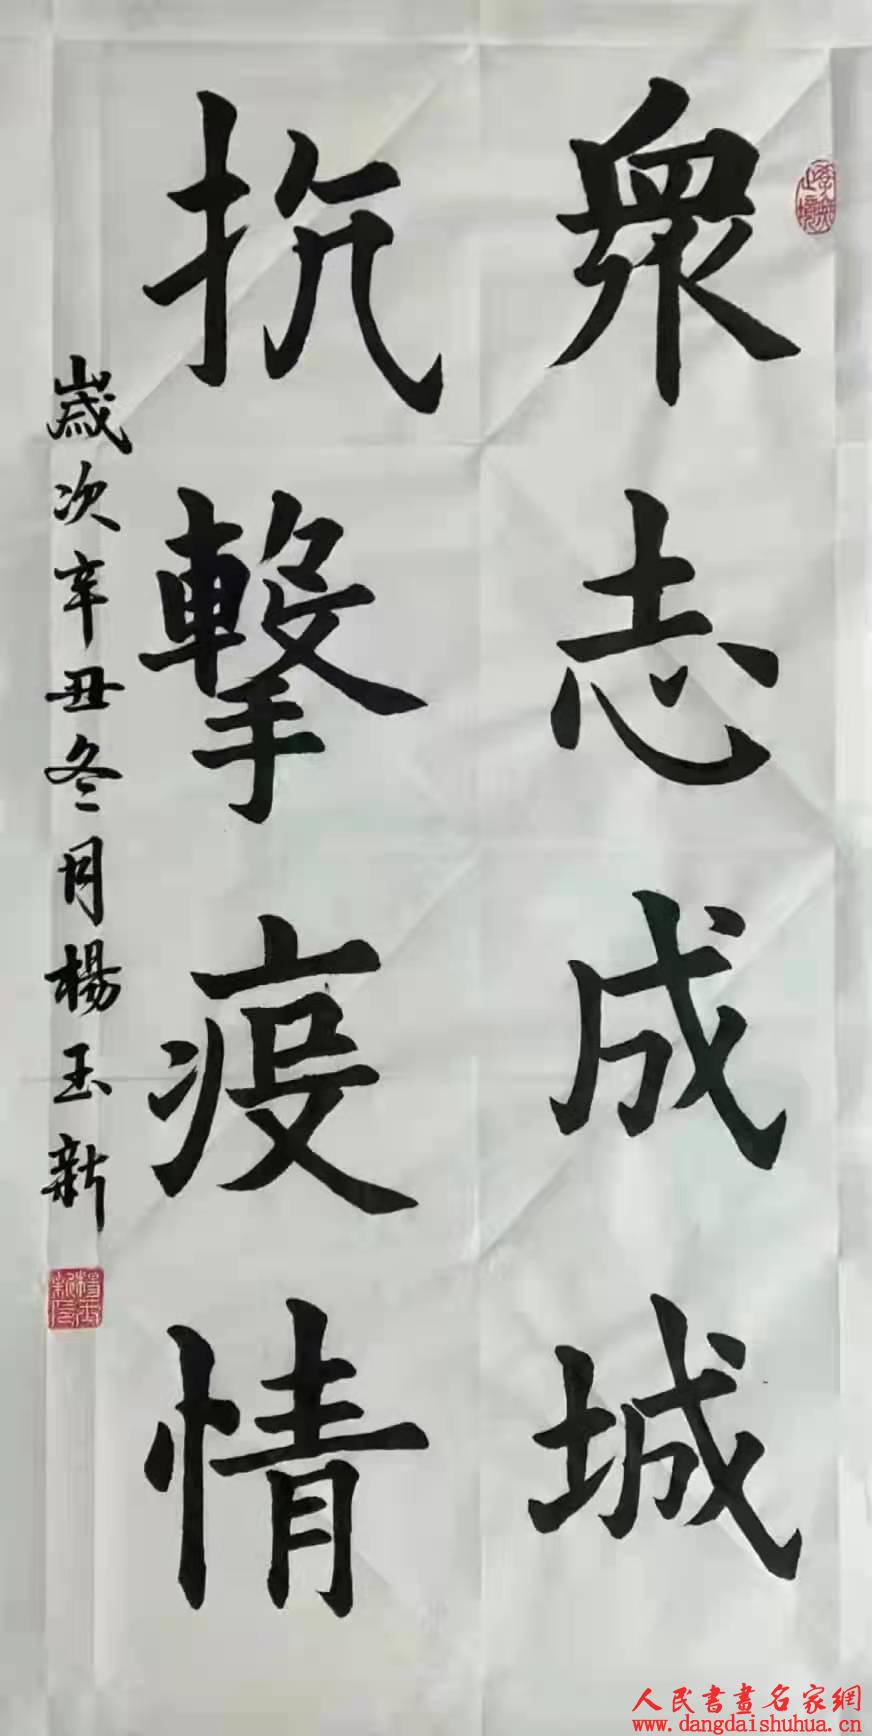 眾志成城
抗擊疫情
歲次辛丑冬月楊玉新
人民書畫名家網
www.dangdaishuhua.cn